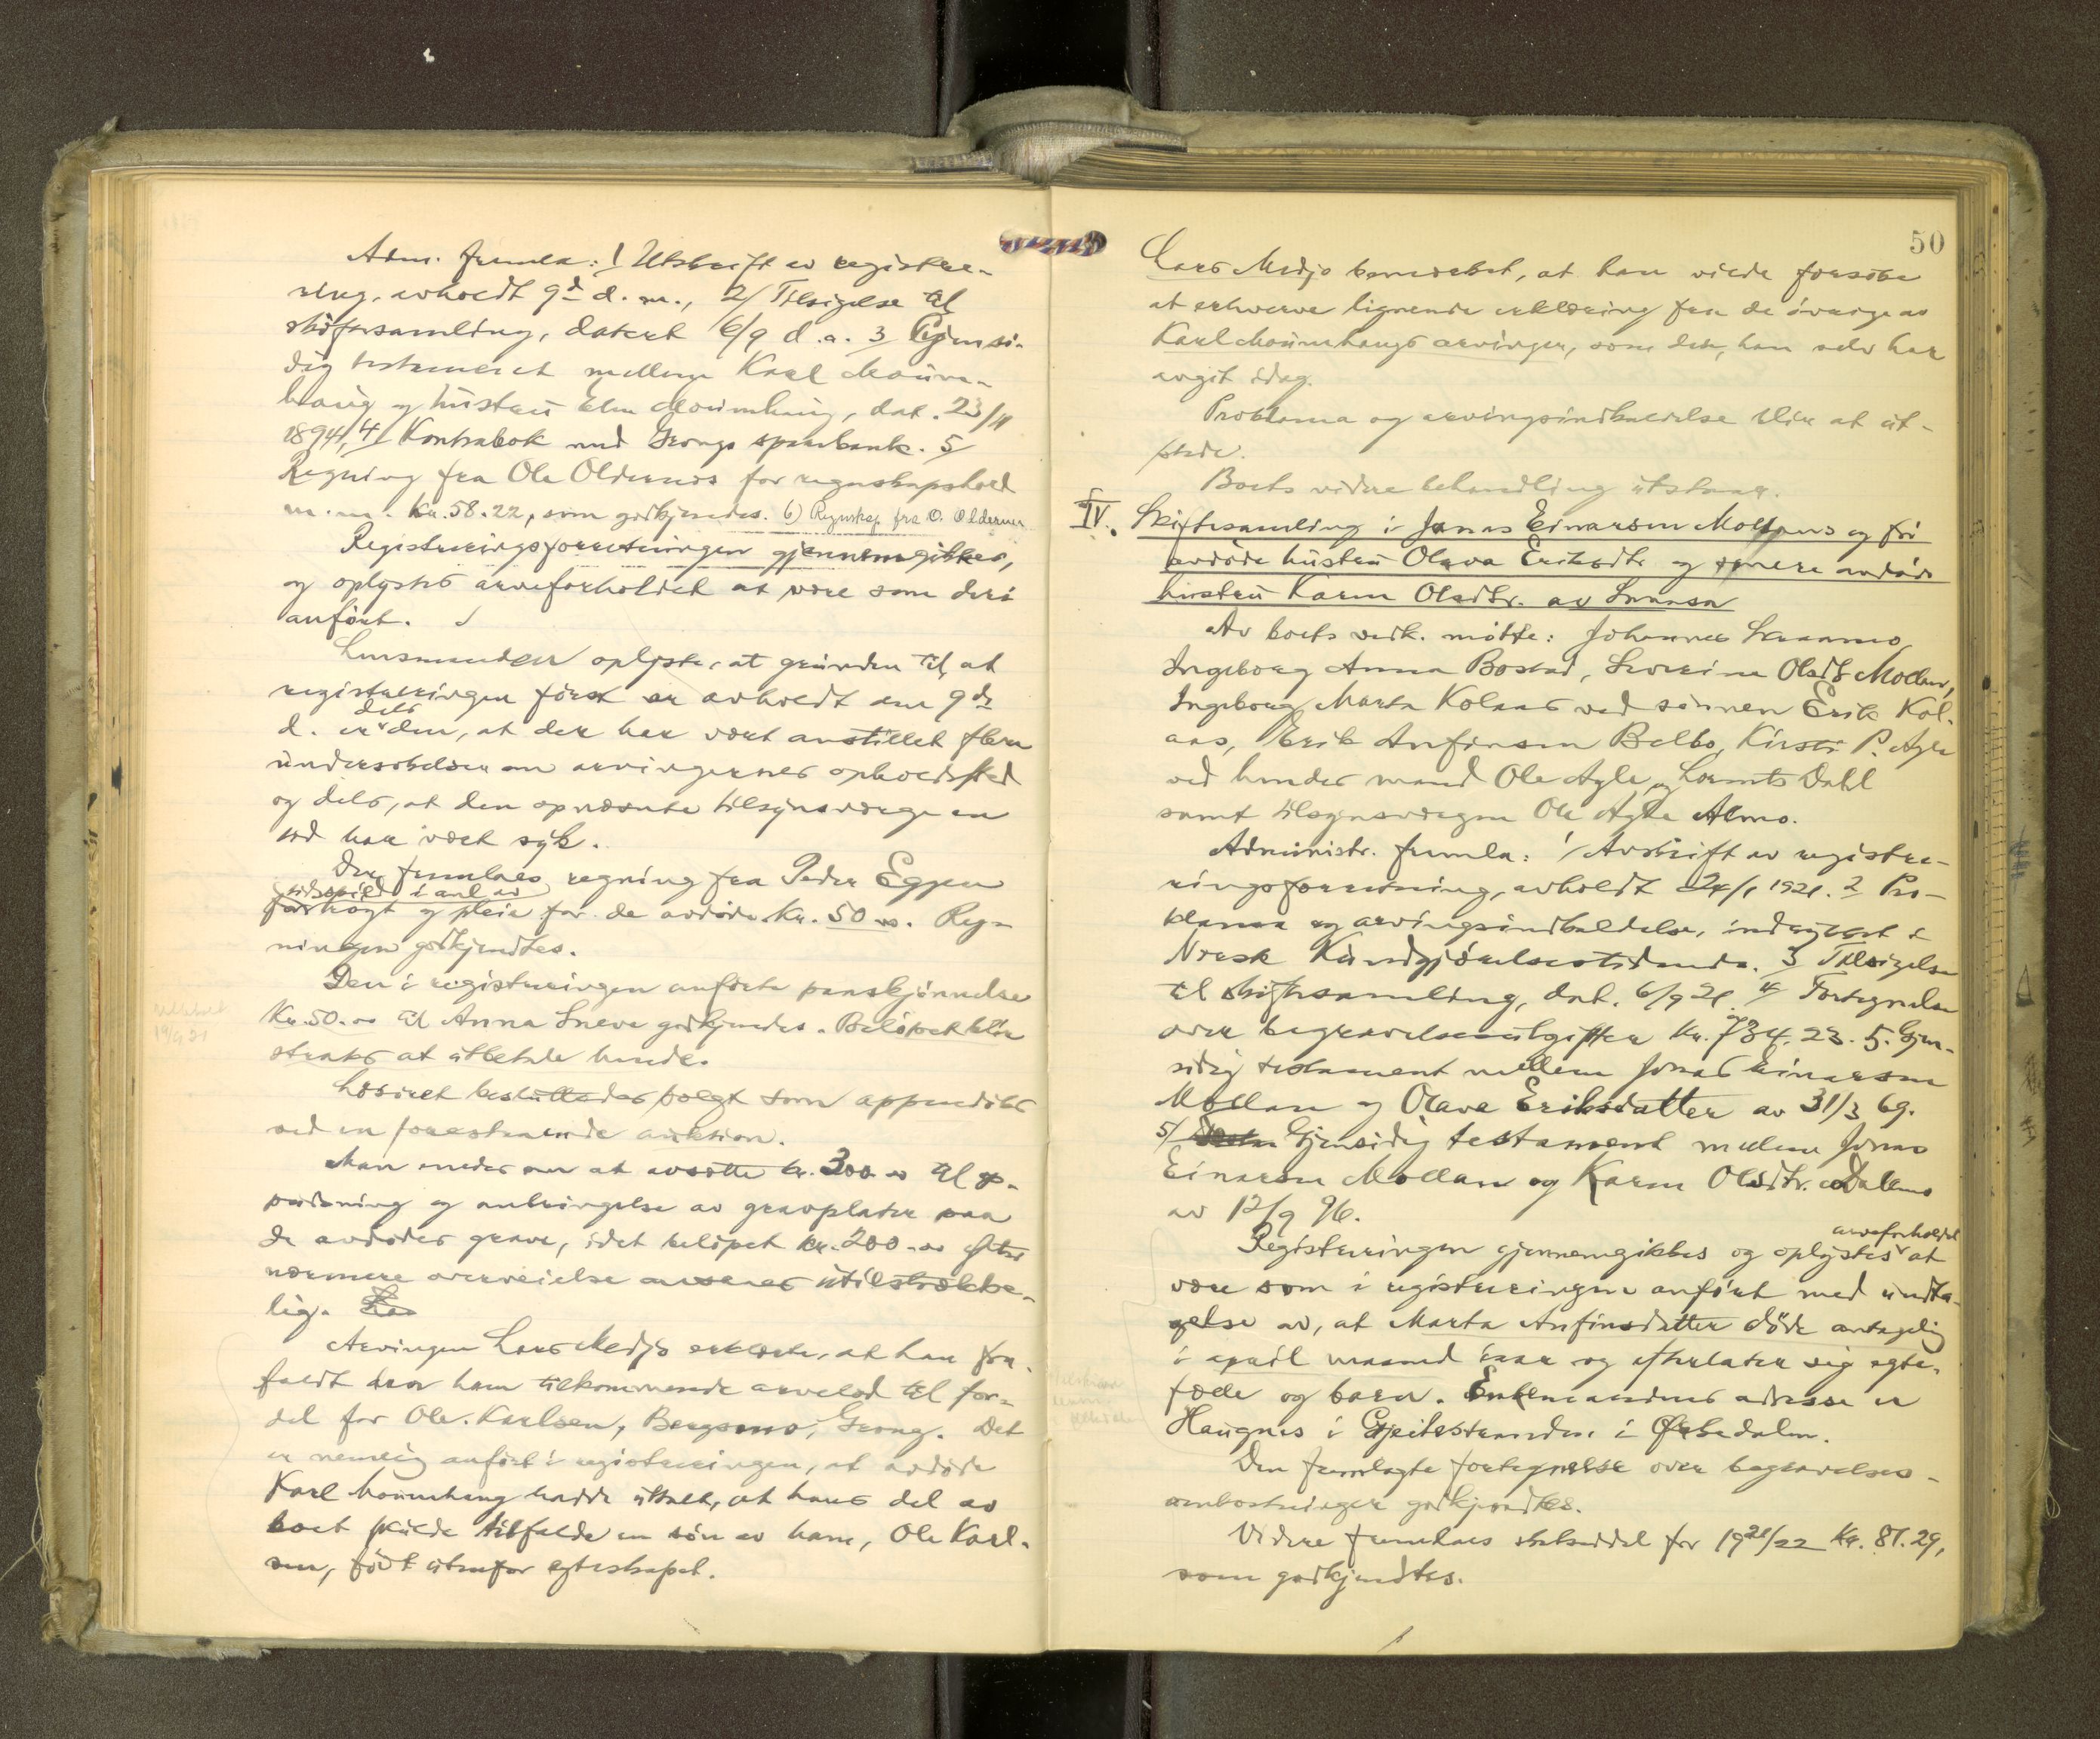 Adm. fremla: 1/ Utskrift av registre-
ring, avholdt 9de d. m., 2/ Tilsigelse til
skiftesamling, datert 6/9 d.a. 3/ Gjensi-
dig testament mellem Karl Moum-
haug og hustru Elen Moumhaug, dat. 23/11
1894, 4/ Kontrabok med Grongs sparebank. 5/
Regning fra Ole Oldernes for regnskapshold
m.m. kr. 58.22, som godkjendes. 6) Regnskap fra O. Oldernes
Registreringsforretningen gjennemgikkes,
og oplystes arveforholdet at være som deri
anført.
Lensmanden oplyste, at grunden til, at
registreringen først er avholdt den 9de
dels
d. er den, at der har vært anstillet flere
undersøkelser om arvingernes opholdssted
og dels, at den opnævnte tilsynsværge en
tid har vært syk.
Der fremlaes regning fra Peder Eggen
tidsspild i anl av
for røgt og pleie for de avdøde kr. 50.00. Reg-
ningen godkjendtes.
Den i registreringen anførte paaskjønnelse
Kr. 50.00 til Anna Sneve godkjendes. Beløpet blir
19/9 21
straks at utbetale hende.
Løsøret besluttedes solgt som
ved en forestaaende auktion.
Man enedes om at avsætte kr. 300.00 til op-
pudsning og anbringelse av gravplater paa
de avdødes grave, idet beløpet kr. 200.00 efter
nærmere overveielse ansees utilstrække-
lig.
Arvingen Lars Medjo erklærte, at han fra-
faldt den ham tilkommende arvelod til for-
del for Ole Karlsen, Bergsmo, Grong. Det
er nemlig anført i registreringen, at avdøde
Karl Moumhaug hadde uttalt, at hans del av
boet skulde tilfalde en søn av ham, Ole Karl-
sen, født utenfor egteskapet.
50
Lars Medjo bemerket, at han vilde forsøke
at erhverve lignende erklæring fra de øvrige av
Karl Moumhaugs arvinger, som den, han selv har
avgit idag.
Proklama og arvingsindkaldelse blir at ut-
stede.
Boets videre behandling utstaar.
IV. Skiftesamling i Jonas Einarsen Mollans og før
avdøde hustru Olava Eriksdtr. og senere avdøde
hustru Karen Olsdtr. av Snaasa
Av boets vedk. møtte: Johannes
Ingeborg Anna Bostad, Severine Olsdtr Mollan,
Ingeborg Marta Kolaas ved sønnen Erik Kol-
aas, Erik Anfinsen Belbo, Kirsti P. Agle
ved hendes mand Ole Agle, og Lorents Dahl
samt tilsynsværgen Ole Agle Almo.
Administr. fremla: 1/ Avskrift av registre-
ringsforretning, avholdt 24/1 1921. 2 Pro-
klama og arvingsindkaldelse, indrykket i
Norsk Kundgjørelsestidende. 3/ Tilsigelse
til skiftesamling, dat. 6/9 21. 4/ Fortegnelse
over begravelsesutgifter kr. 734.23. 5. Gjen-
sidig testament mellem Jonas Einarsen
Mollan og Olava Eriksdatter av 31/3 69.
5/ Gjensidig testament mellem Jonas
Einarsen Mollan og Karen Olsdtr. Dallmo
av 12/9 96.
arveforholdet
Registreringen gjennemgikkes og oplystes at
være som i registreringen anført med undta-
gelse av, at Marta Anfinsdatter døde antagelig
i april maaned iaar og efterlater sig egte-
fælle og barn. Enkemandens adresse er
Haugnes i Gjeitestranden i Ørkedalen.
Den fremlagte fortegnelse over begravelses-
omkostninger godkjendtes.
Videre fremlaes skatseddel for 1921/22 kr. 81.29,
som godkjendtes.